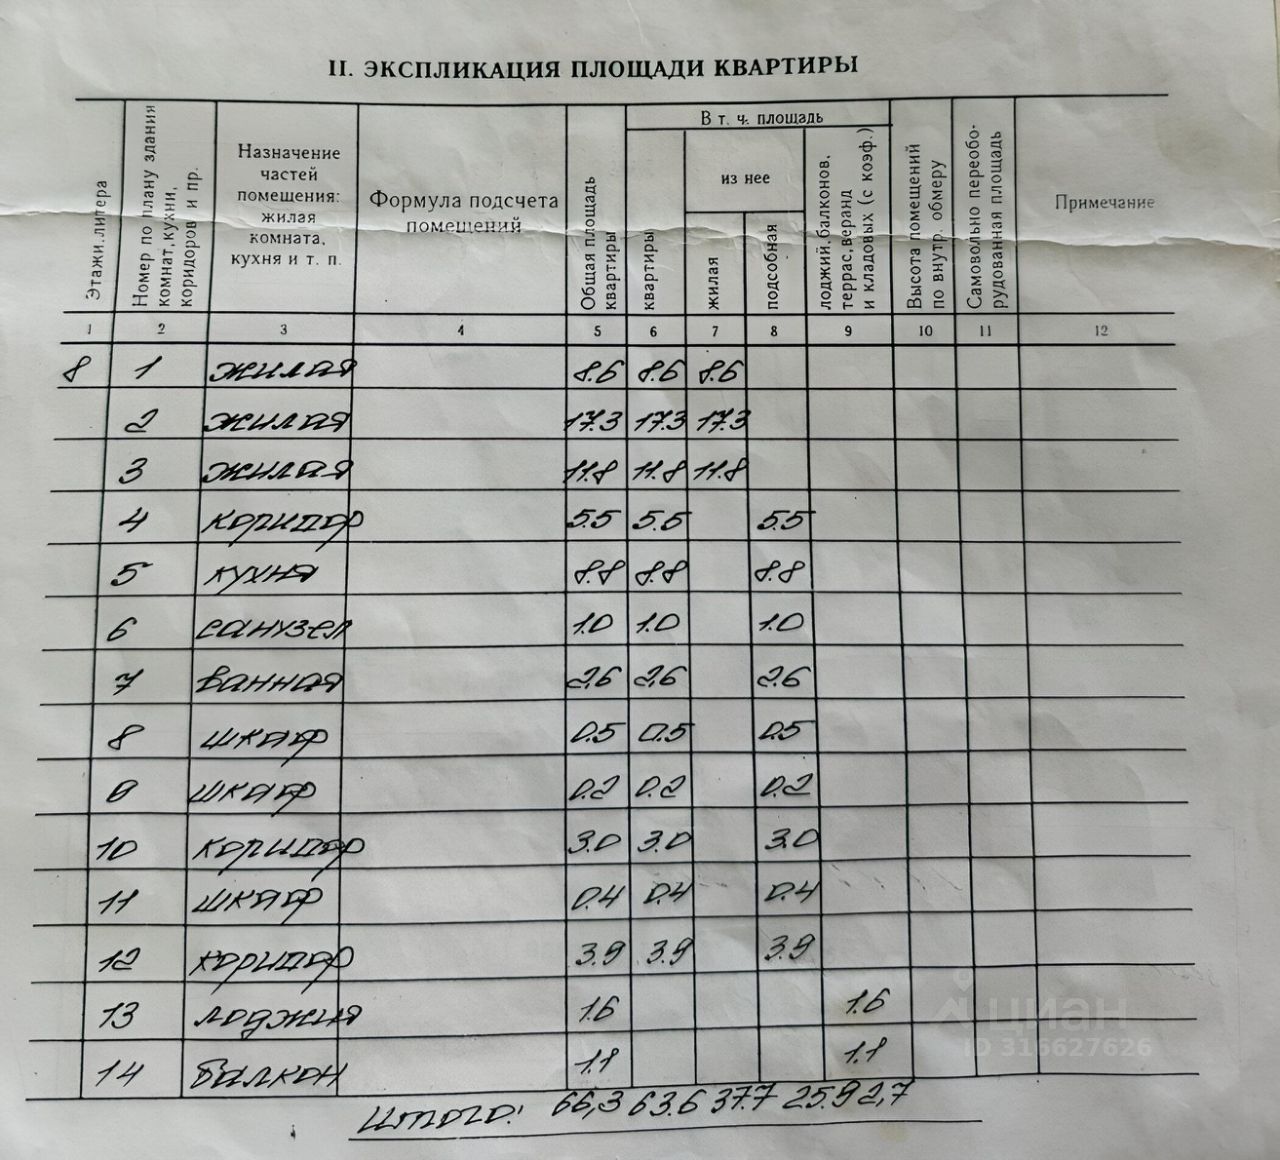 II. ЭКСПЛИКАЦИЯ ПЛОЩАДИ КВАРТИРЫ
Этажи, литера
Номер по плану здания
комнат, кухни,
коридоров и пр.
Назначение
частей
помещения:
жилая
комната,
кухня и т. п.
Формула подсчета
помещений
Общая площадь
квартиры
В т. ч. площадь
квартиры
из нее
жилая
подсобная
лоджий, балконов,
террас, веранд
и кладовых (с коэф.)
Высота помещений
по внутр. обмеру
Самовольно переобо-
рудованная площадь
Примечание
1 2 3 4 5 6 7 8 9 10 11 12
8 1 жилая 8.6 8.6 8.6
2 жилая 17.3 17.3 17.3
3 жилая 11.8 11.8 11.8
4 коридор 5.5 5.5 5.5
5 кухня 8.8 8.8 8.8
6 санузел 1.0 1.0 1.0
7 ванная 2.6 2.6 2.6
8 шкаф 0.5 0.5 0.5
9 шкаф 0.2 0.2 0.2
10 коридор 3.0 3.0 3.0
11 шкаф 0.4 0.4 0.4
12 коридор 3.9 3.9 3.9
13 лоджия 1.6 1.6
14 балкон 1.1 1.1
Итого: 66,3 63.6 37.7 25.9 2,7
циан
ID 316627626